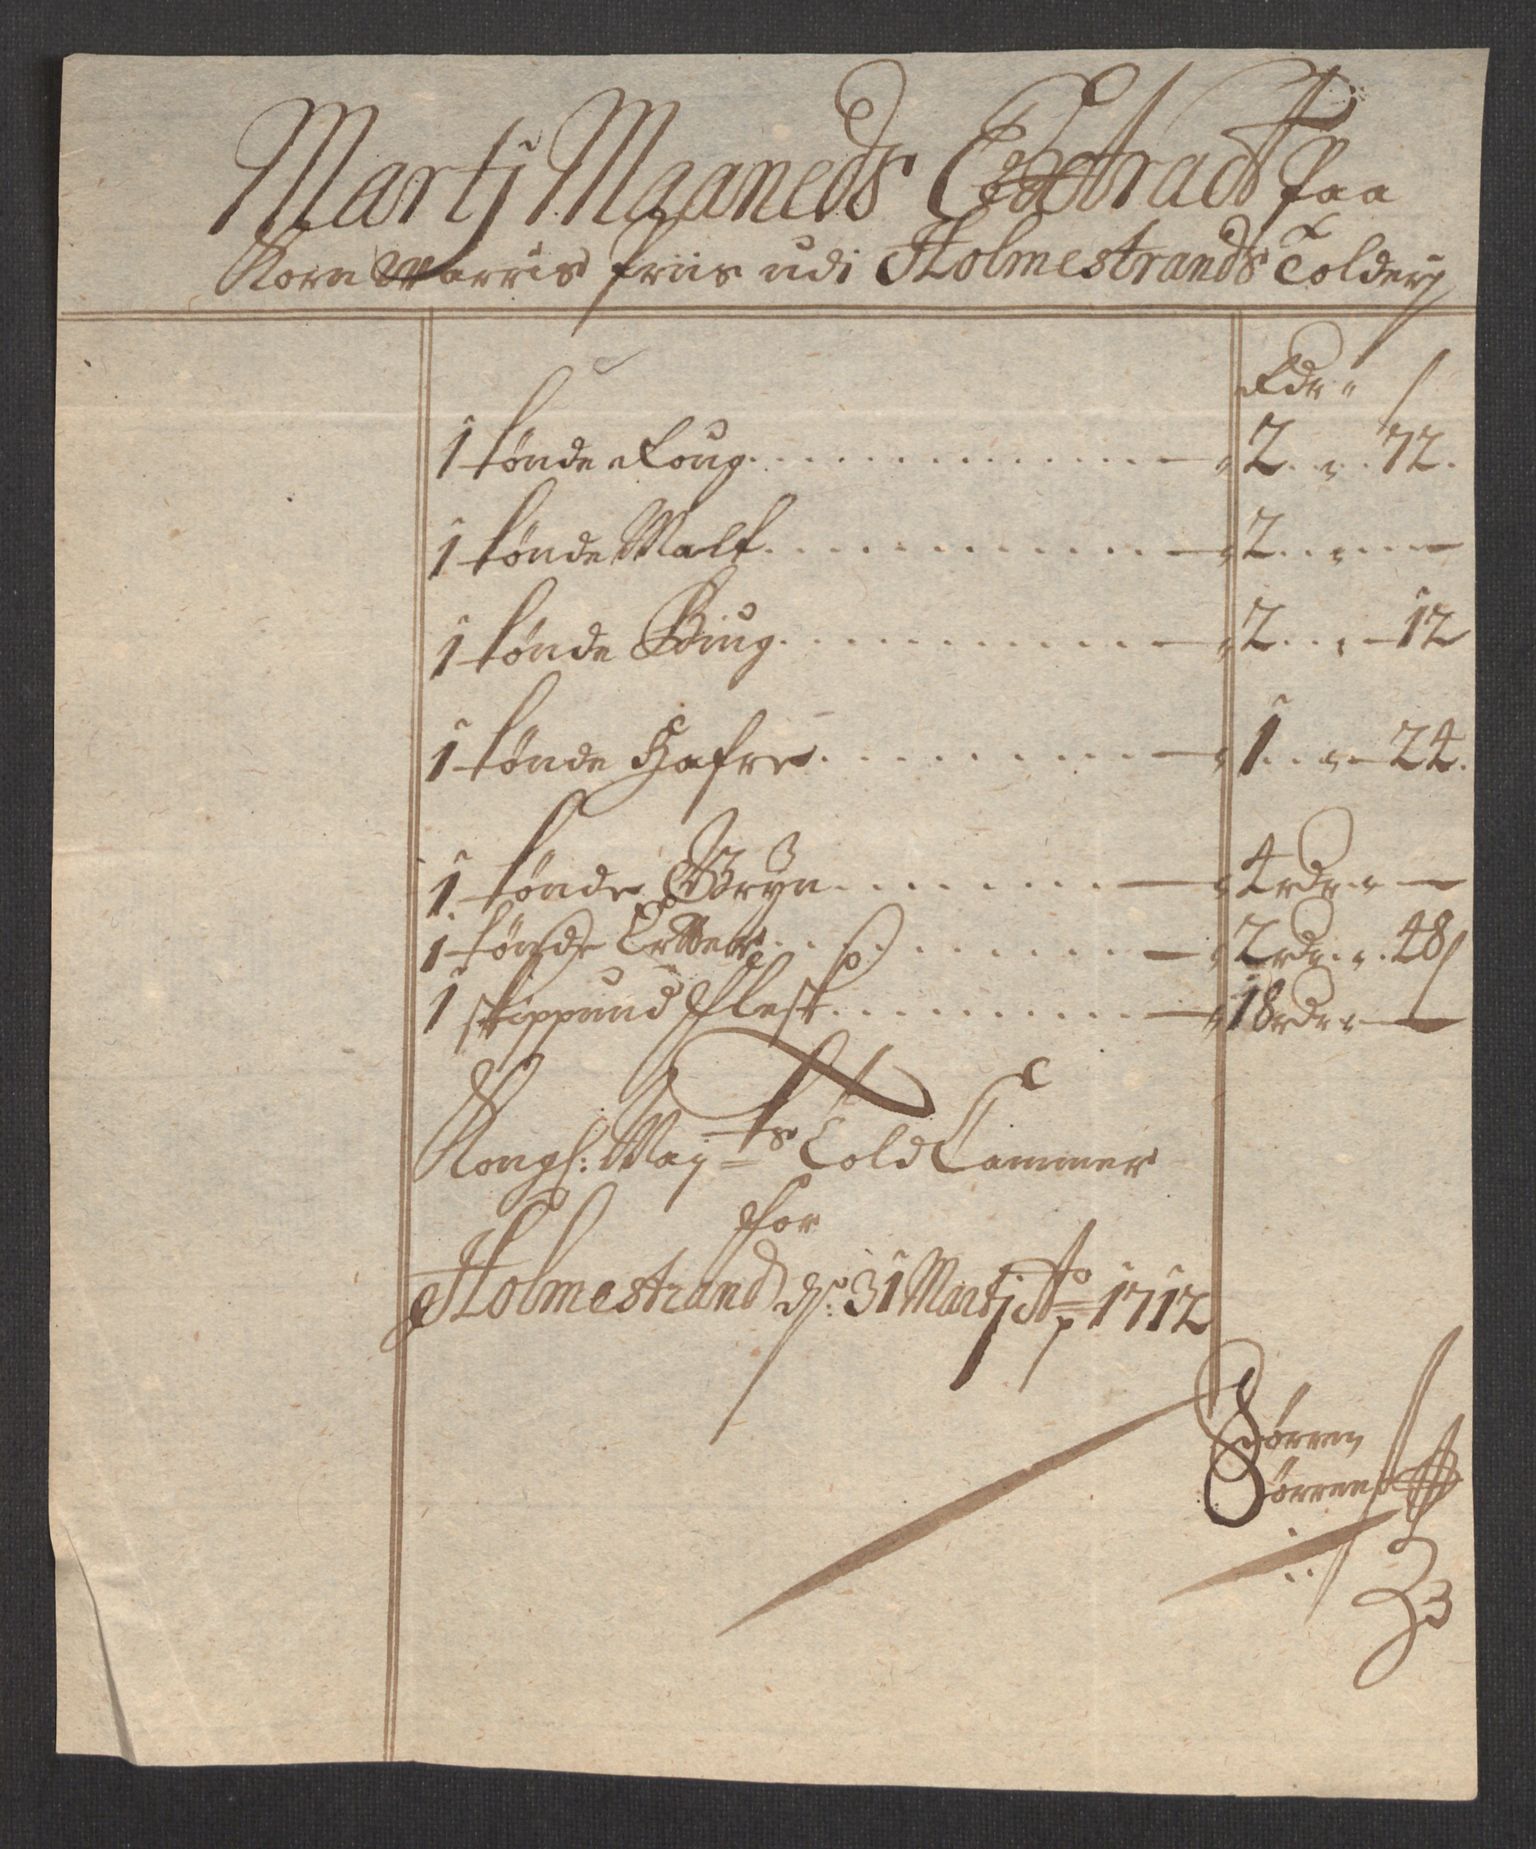 Martj Maaneds Extract paa
Korn Warris friis udi Holmestrands Tolderj
Rdr " ſ
1 tønde Roug . . . . . . . . . . . . 2 „ 72.
1 tønde Malt . . . . . . . . . . . . 2 „ —
1 tønde Biug . . . . . . . . . . . . 2 „ 12
1 tønde Hafre . . . . . . . . . . . 1 „ 24.
1 tønde Gryn . . . . . . . . . . . 4 rdr „ —
1 tønde Ertter . . . . . . . . . . 2 rdr „ 48 ſ
1 skippund Flesk . . . . . . . . . 18 rdr „ —
Kongl: May=ts Told Cammer
for
Holmestrand ds: 31 Martj Ao 1712
Sørren
Sørrens